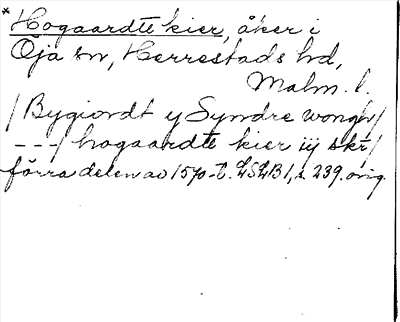 * Hogaardte kier, åker i
Öja sn, Herrestads hd,
Malm. l.
/Bygiordt y Syndre wongh/
---/ hogaardte kier iij skr/
förra delen av 1570-t. LSLB1, s. 239. orig.